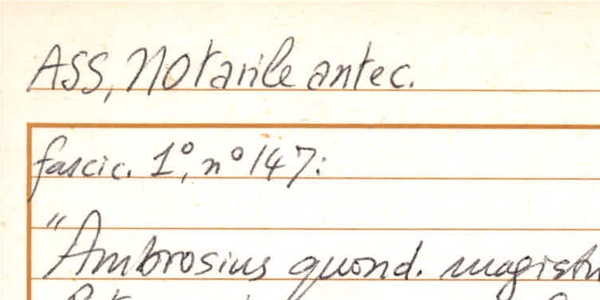 ASS, Notarile antec.
fascic. 1°, n° 147:
"Ambrosius quond.